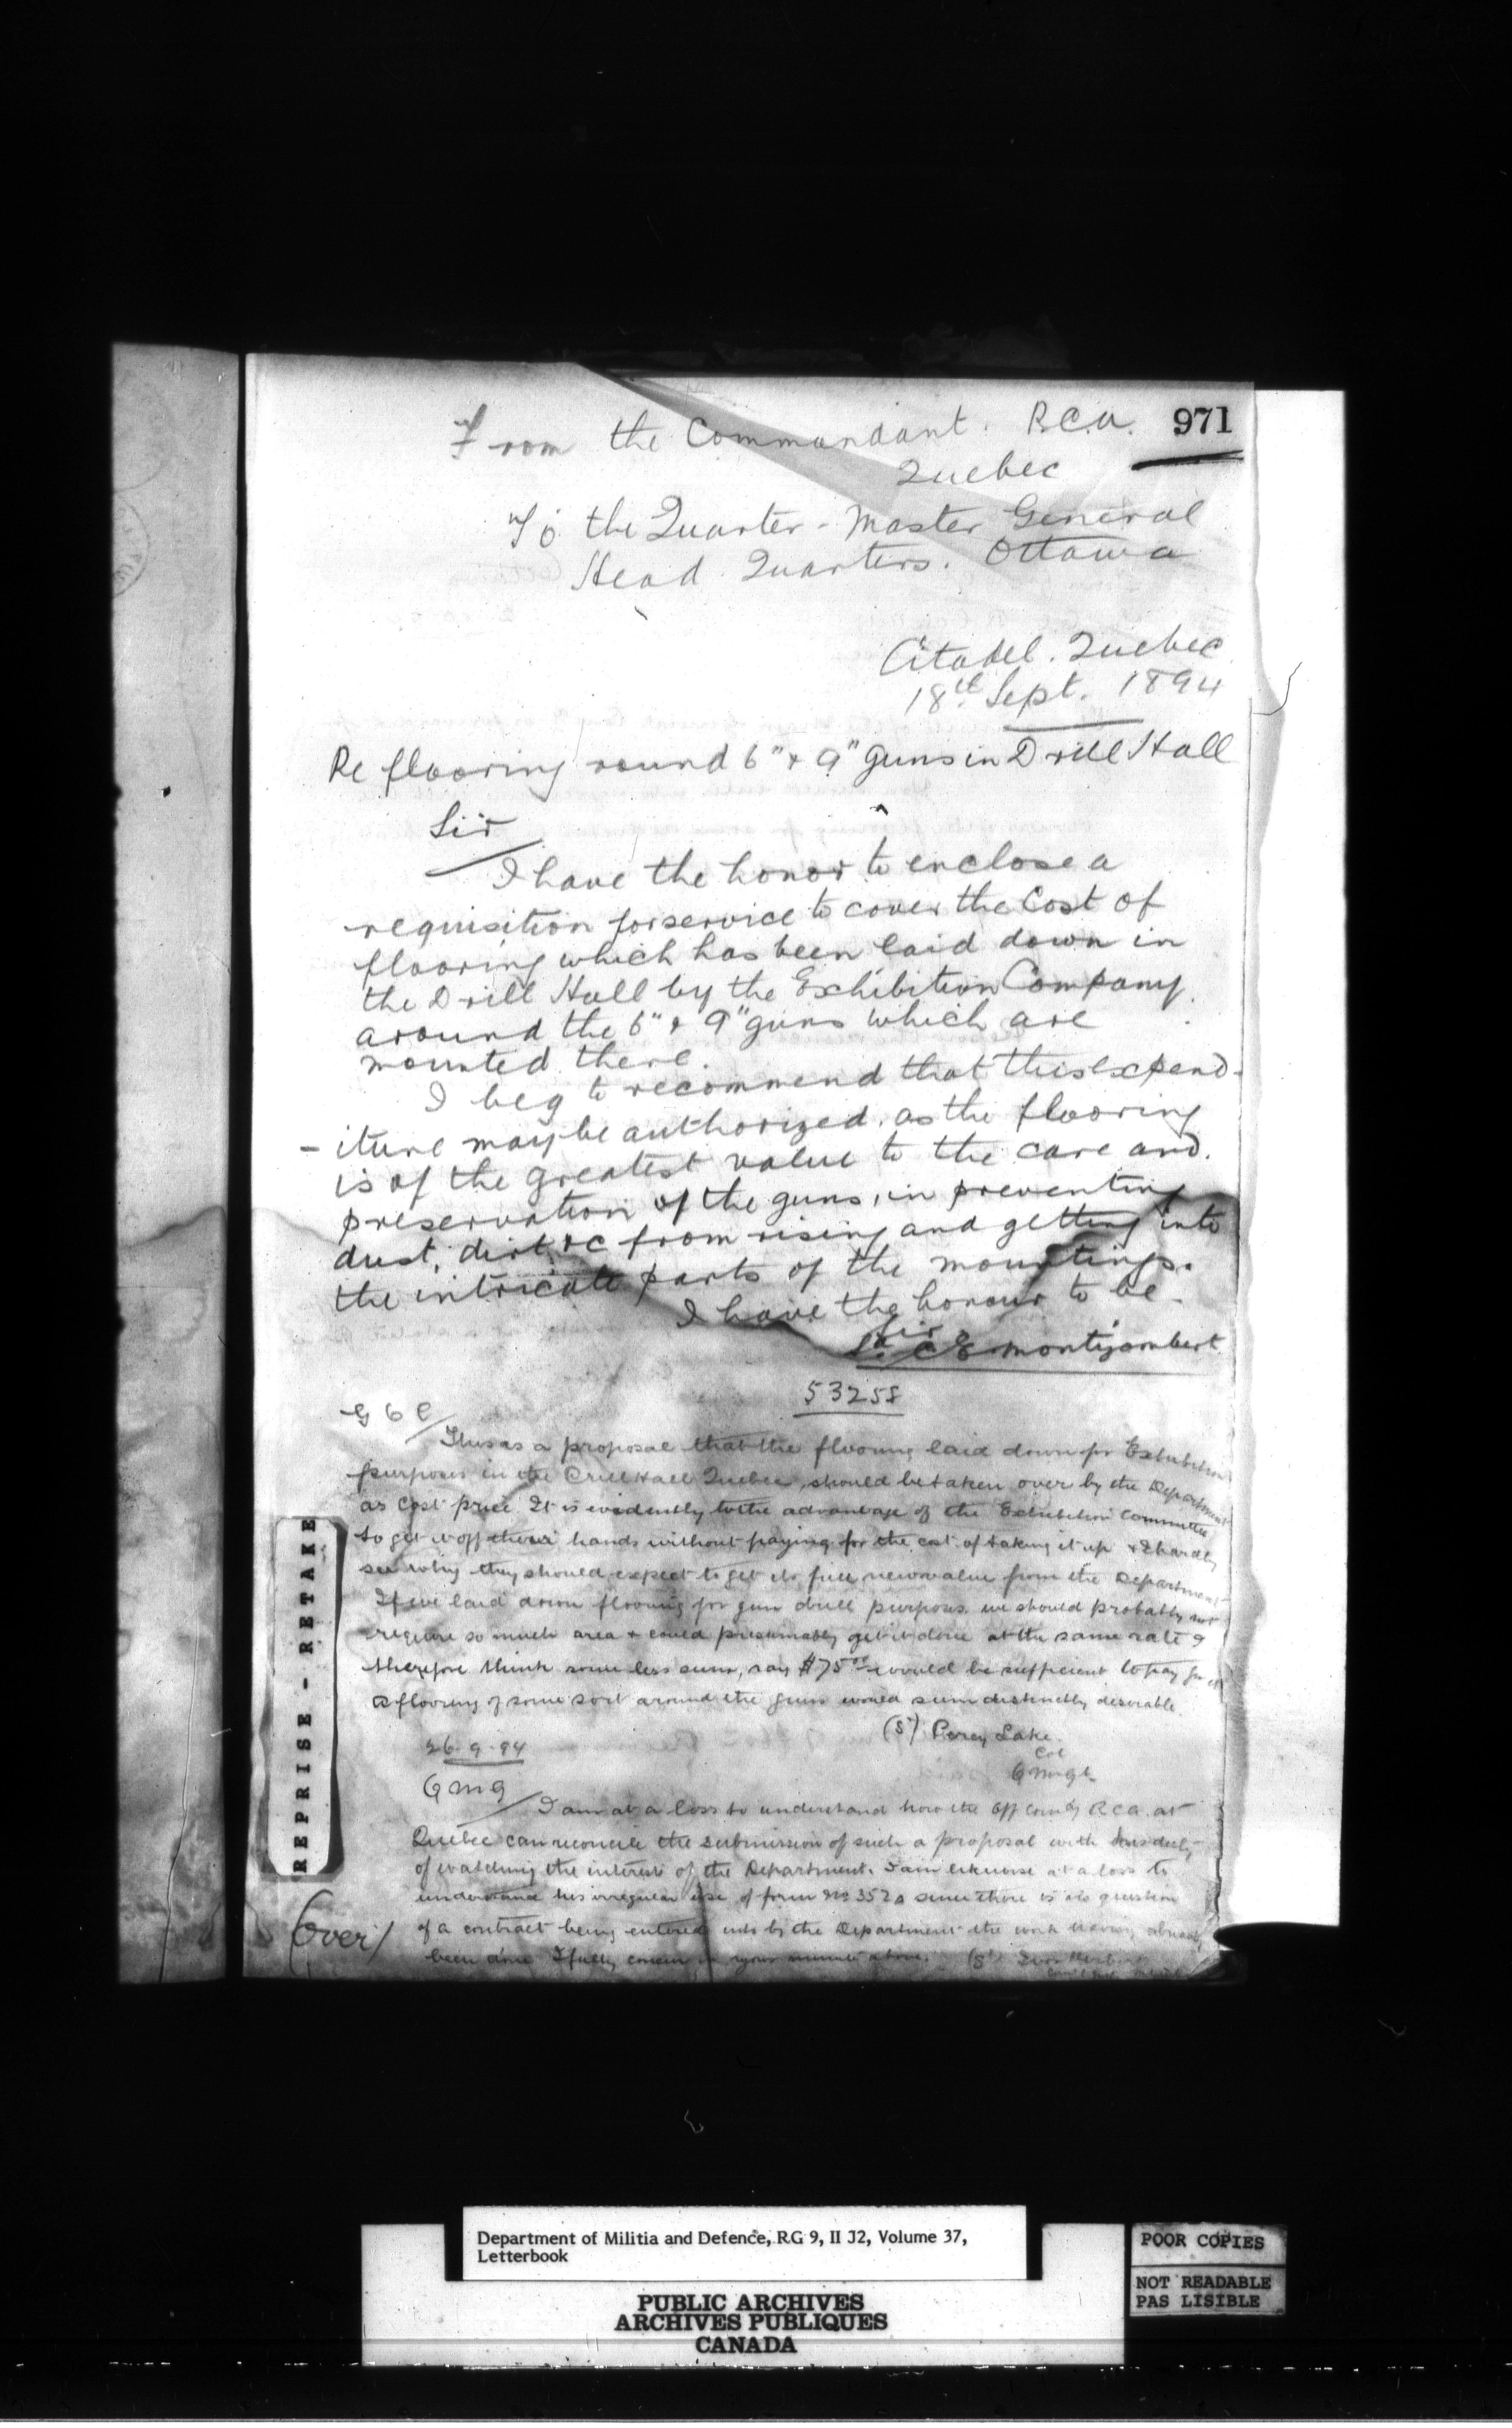 971
From the Commandant. R.C.A.
Quebec
To the Quarter-Master General
Head Quarters. Ottawa
Citadel. Quebec
18th Sept. 1894
Re flooring round 6" & 9" guns in Drill Hall
Sir
I have the honor to enclose a
requisition for service to cover the Cost of
flooring which has been laid down in
the Drill Hall by the Exhibition Company
around the 6" & 9" guns which are
mounted there.
I beg to recommend that this expend-
-iture may be authorized, as the flooring
is of the greatest value to the care and
preservation of the guns, in preventing
dust, dirt &c from rising and getting into
the intricate parts of the mountings.
I have the honour to be
Sir
Sd. C E Montizambert
53258
This is a proposal that the flooring laid down for Exhibition
purposes in the Drill Hall Quebec, should be taken over by the Department
as Cost price. It is evidently to the advantage of the Exhibition Committee
to get it off their hands without paying for the cost of taking it up & I hardly
see why they should expect to get its full new value from the Department
If we laid down flooring for gun drill purposes, we should probably not
require so much area & could presumably get it done at the same rate I
therefore think some less sum, say $75.00 would be sufficient to pay for it
A flooring of some sort around the guns would seem distinctly desirable.
(Sd) Percy Lake
Col
QMGl
26-9-94
QMG
I am at a loss to understand how the Off Comdg RCA. at
Quebec can reconcile the submission of such a proposal with his duty
of watching the interests of the Department. I am likewise at a loss to
understand his irregular use of form No 352a since there is no question
of a contract being entered into by the Department the work having already
been done I fully concur in your minute above. (Sd)
(over)
REPRISE - RETAKE
Department of Militia and Defence, RG 9, II J2, Volume 37,
Letterbook
PUBLIC ARCHIVES
ARCHIVES PUBLIQUES
CANADA
POOR COPIES
NOT READABLE
PAS LISIBLE